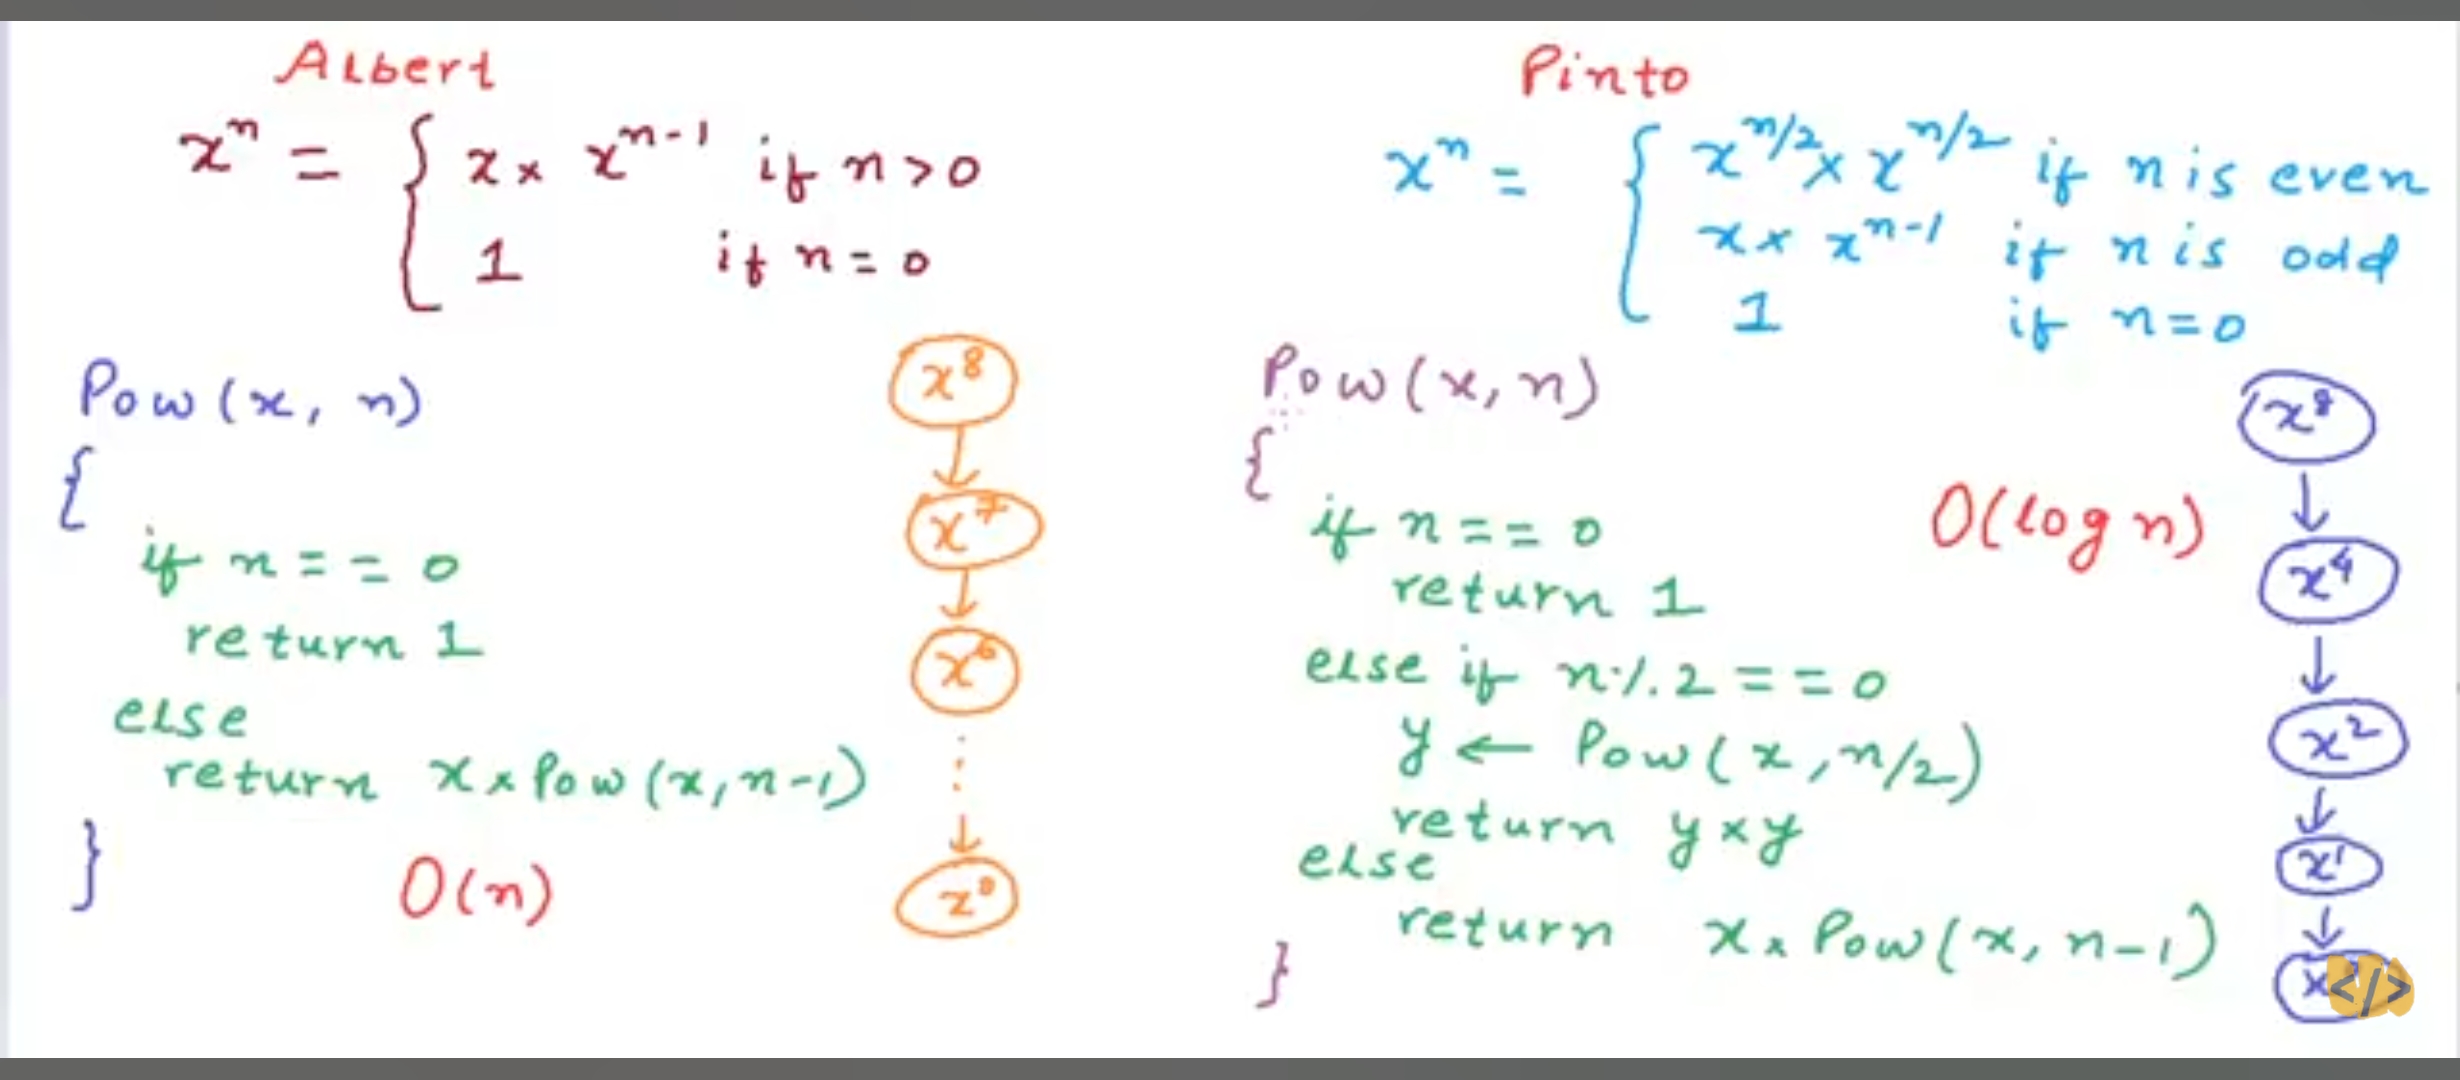 Albert
xⁿ = { x × xⁿ⁻¹ if n > 0
1 if n = 0
Pow(x, n)
{
if n == 0
return 1
else
return x × Pow(x, n-1)
}
O(n)
x⁸
x⁷
x⁶
⋮
x⁰
Pinto
xⁿ = { x^(n/2) × x^(n/2) if n is even
x × xⁿ⁻¹ if n is odd
1 if n = 0
Pow(x, n)
{
if n == 0
return 1
else if n % 2 == 0
y ← Pow(x, n/2)
return y × y
else
return x × Pow(x, n-1)
}
O(log n)
x⁸
x⁴
x²
x¹
x
</>